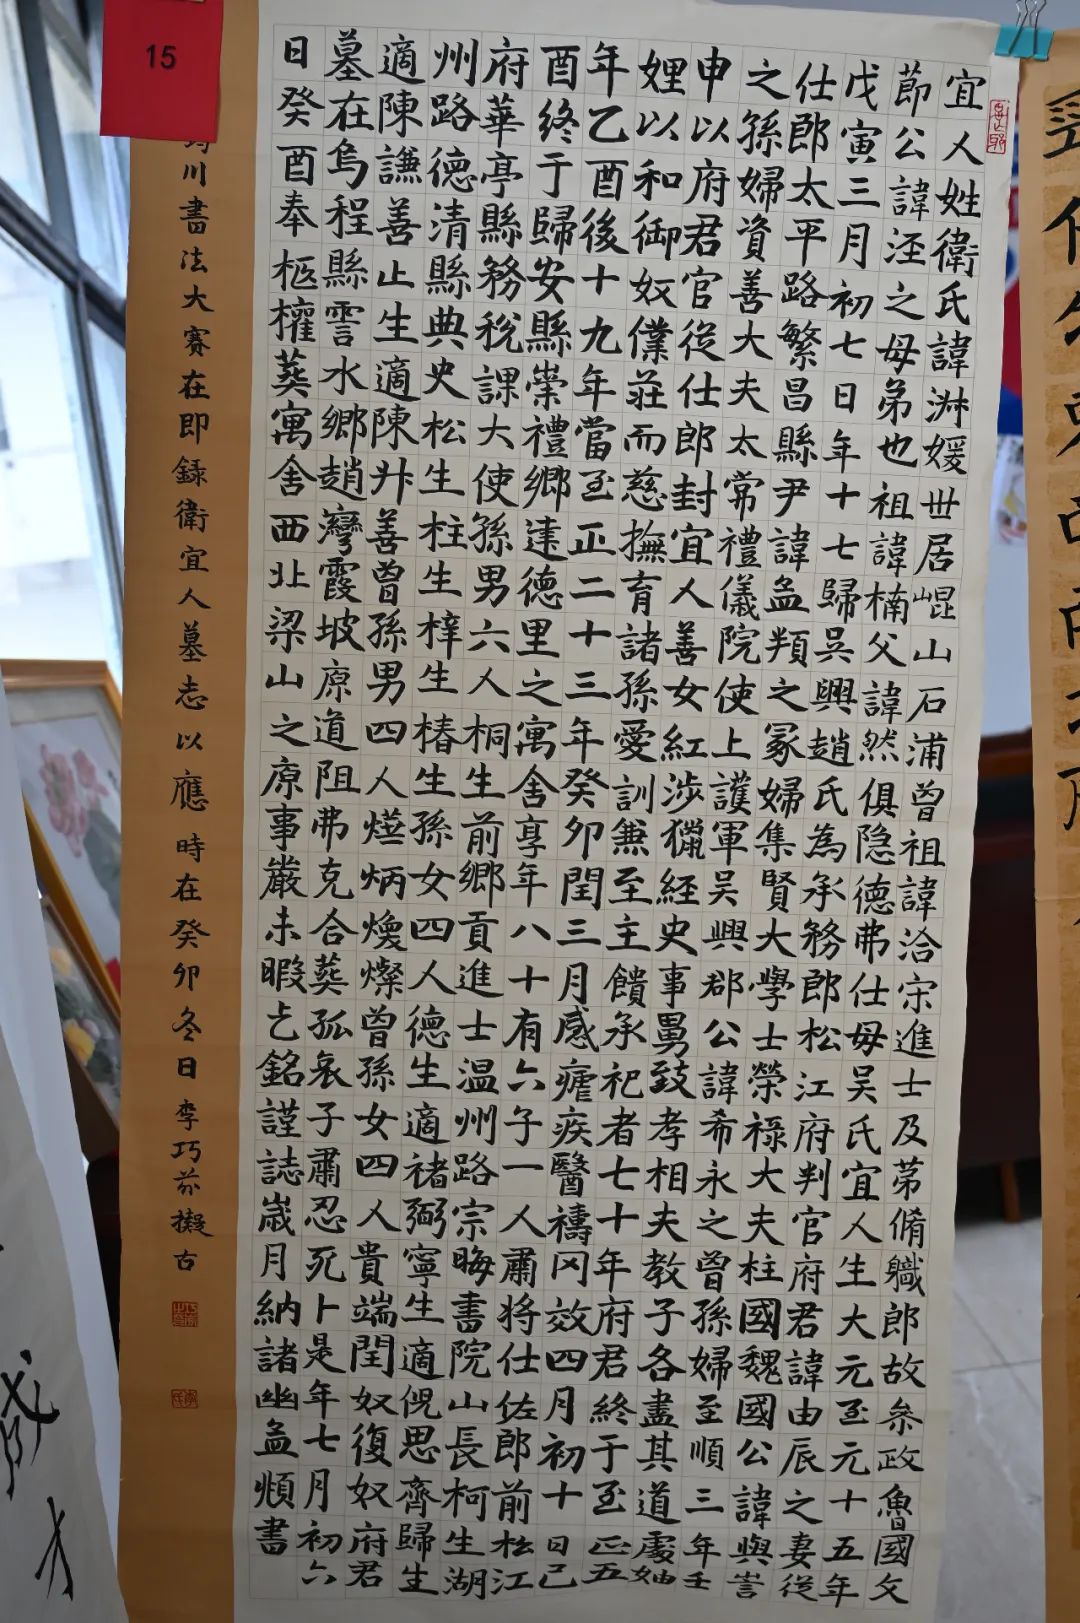 宜人姓衛氏諱淋媛世居崐山石浦曾祖諱洽宋進士及苐脩職郎故叅政魯國文
節公諱涇之母弟也祖諱楠父諱然俱隐德弗仕母吴氏宜人生大元至元十五年
戊寅三月初七日年十七歸吴興趙氏為承務郎松江府判官府君諱由辰之妻從
仕郎太平路繁昌縣尹諱孟頖之冢婦集賢大學士榮禄大夫柱國魏國公諱與訔
之孫婦資善大夫太常禮儀院使上護軍吴興郡公諱希永之曾孫婦至順三年壬
申以府君官從仕郎封宜人善女紅涉獵經史事舅致孝相夫教子各盡其道處妯
娌以和御奴僕莊而慈撫育諸孫愛訓兼至主饋承祀者七十年府君終于至正五
年乙酉後十九年當至正二十三年癸卯閏三月感瘧疾醫禱罔效四月初十日己
酉終于歸安縣崇禮鄉建德里之寓舍享年八十有六子一人肅将仕佐郎前松江
府華亭縣務税課大使孫男六人桐生前鄉貢進士温州路宗晦書院山長柯生湖
州路德清縣典史松生柱生梓生椿生孫女四人德生適褚弼寧生適倪思齊歸生
適陳謙善止生適陳升善曾孫男四人㷼炳煥燦曾孫女四人貴端閏奴復奴府君
墓在烏程縣霅水鄉趙灣霞坡原道阻弗克合葬孤哀子肅忍死卜是年七月初六
日癸酉奉柩權葬寓舍西北梁山之原事嚴未暇乞銘謹誌歳月納諸幽孟頫書
川書法大賽在即録衛宜人墓志以應時在癸卯冬日李巧芬擬古
15